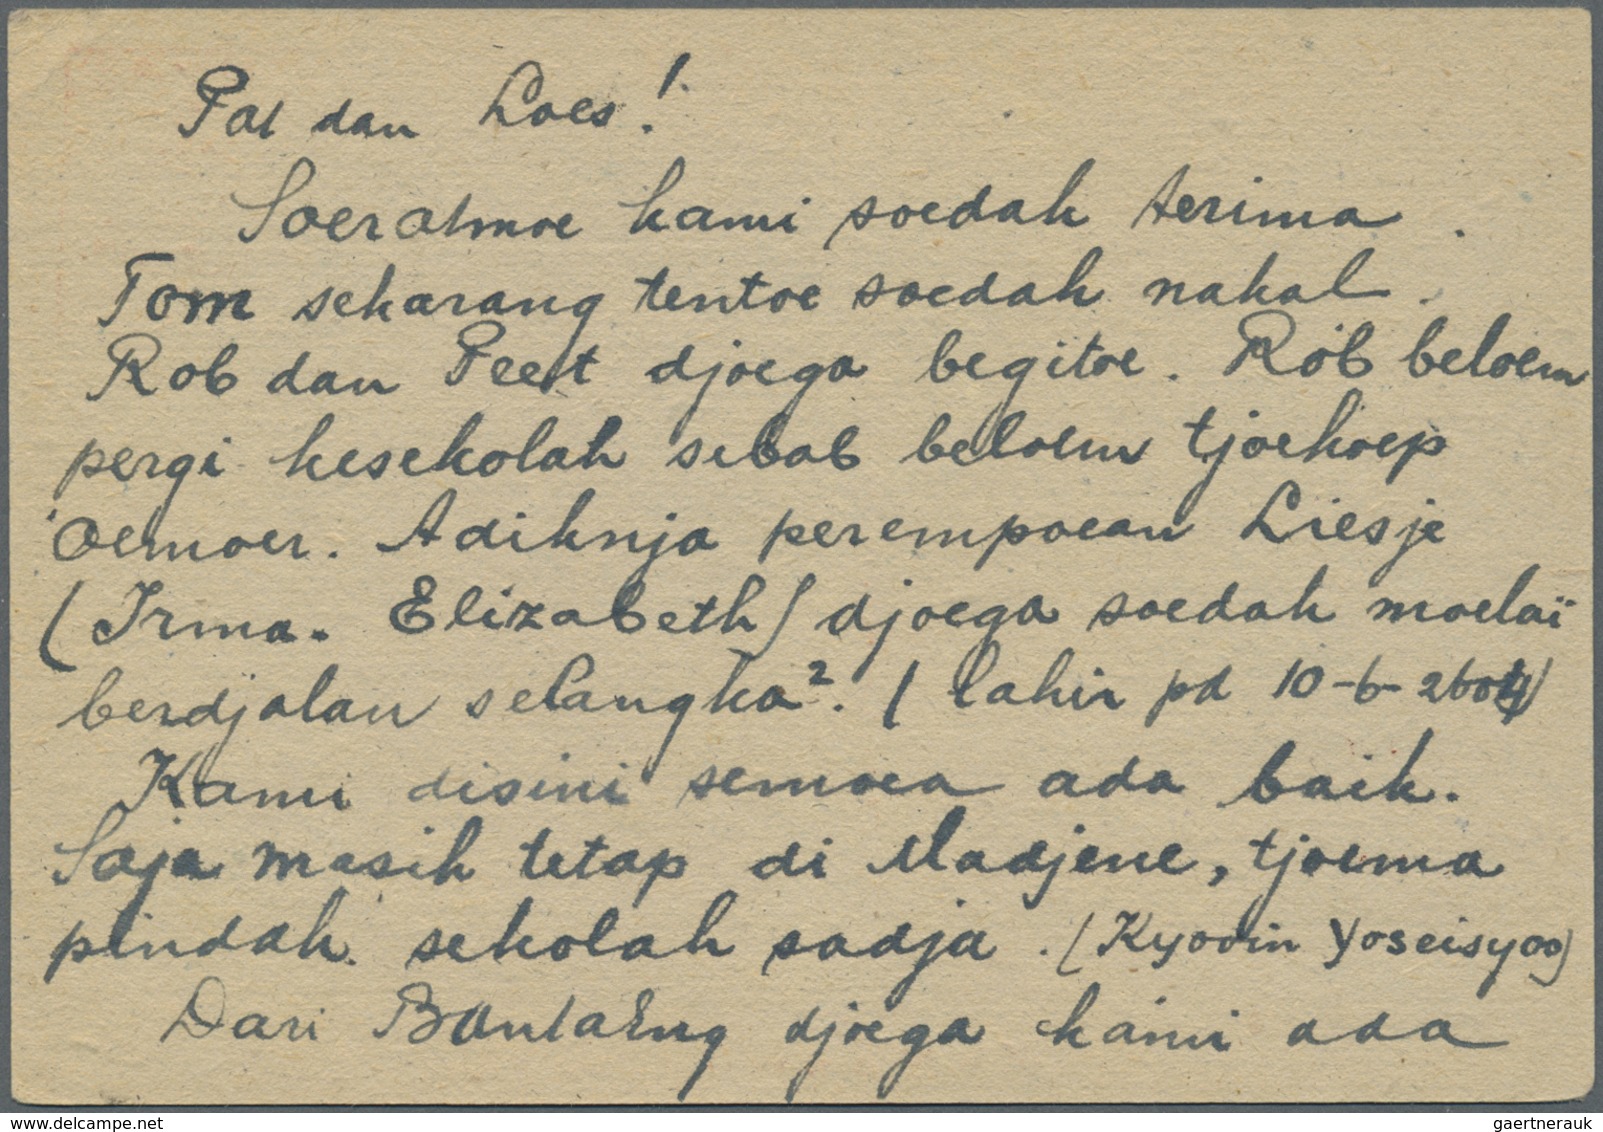 Pat dan Loes!
Soeratmoe kami soedah terima.
Tom sekarang tentoe soedah nakal.
Rob dan Peert djoega begitoe. Rob beloem
pergi kesekolah sebab beloem tjoekoep
oemoer. Adiknja perempoean Liesje
(Irma. Elizabeth) djoega soedah moelaï
berdjalan selangka². (lahir pd 10-6-2604)
Kami disini semoea ada baik.
Saja masih tetap di Madjene, tjoema
pindah sekolah sadja. (Kyooin Yoseisyoo)
Dari Bantaëng djoega kami ada
gaertnerauk
www.delcampe.net